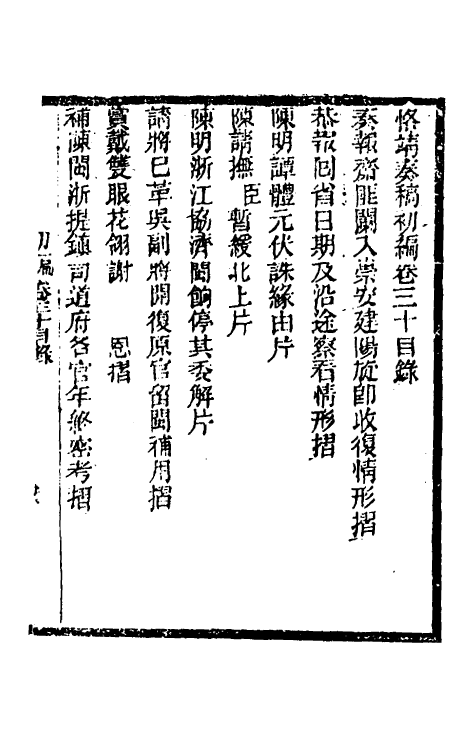 恪靖奏稿初編卷三十目錄
奏報齋匪闌入崇安建陽旋即收復情形摺
恭報回省日期及沿途察看情形摺
陳明譚體元伏誅緣由片
陳請撫臣暫緩北上片
陳明浙江協濟閩餉停其委解片
請將已革吳副將開復原官留閩補用摺
賞戴雙眼花翎謝　恩摺
補陳閩浙提鎮司道府各官年終密考摺
初編卷三十目錄